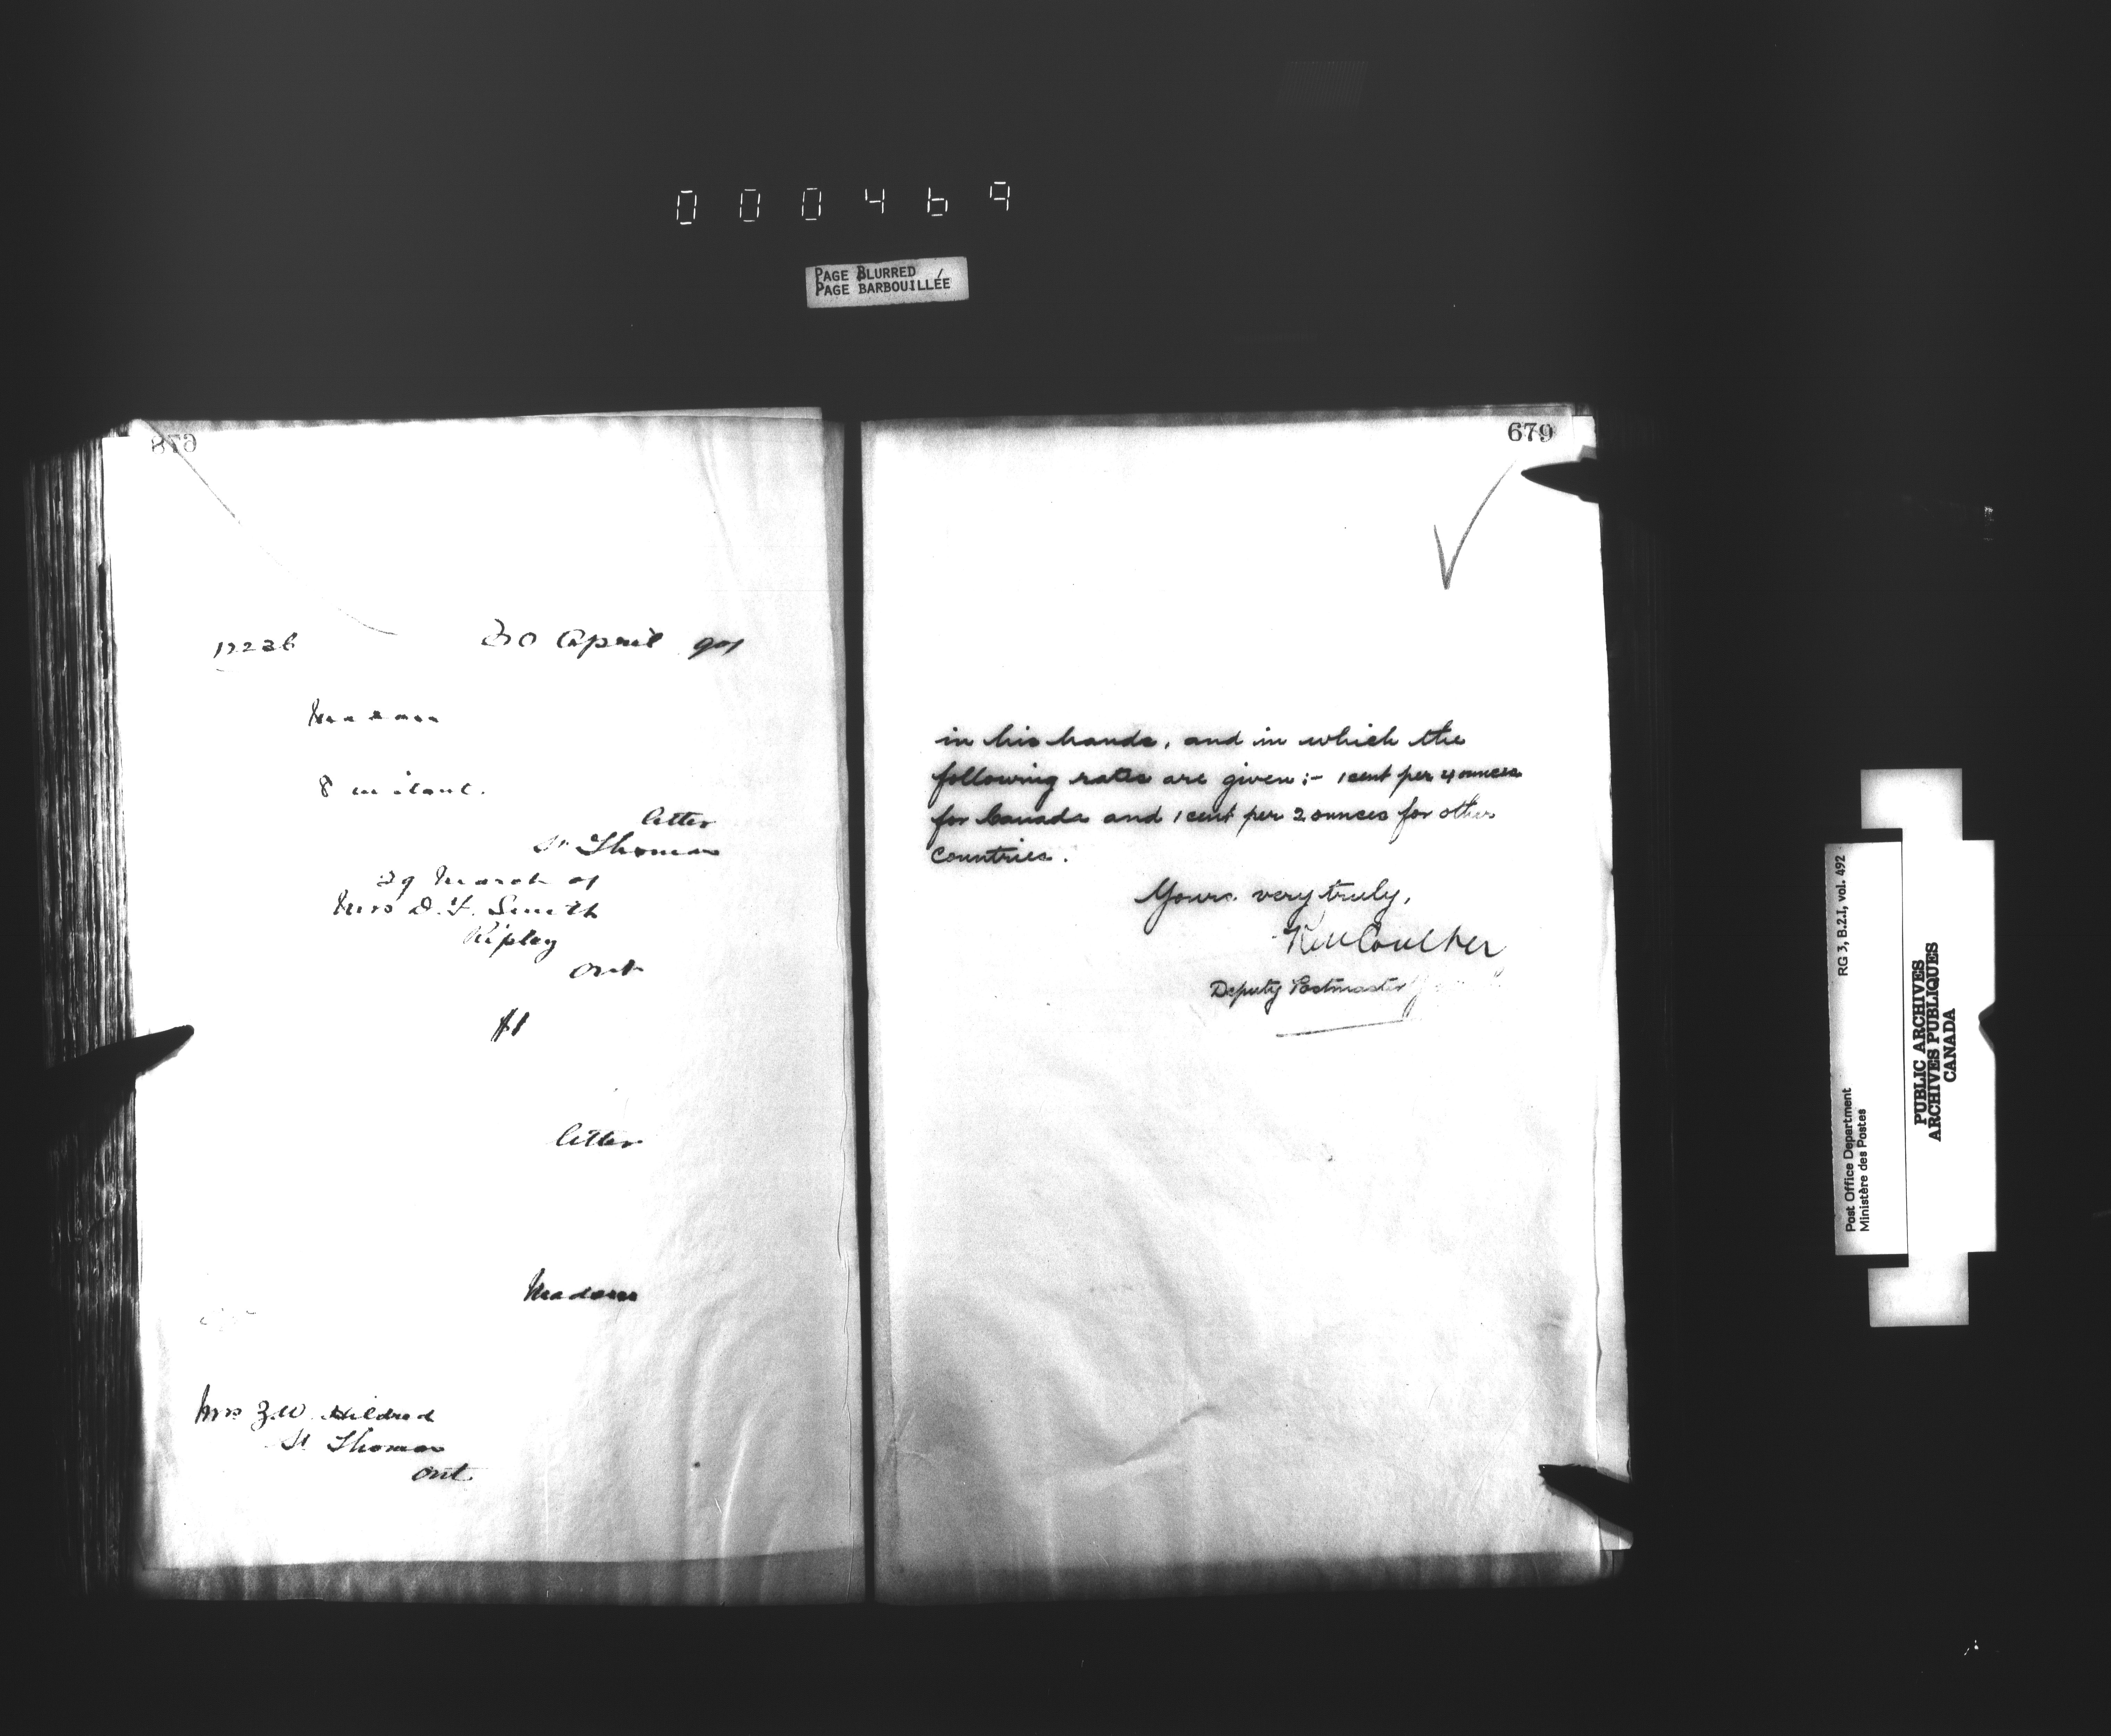 000469
PAGE BLURRED
PAGE BARBOUILLÉE
12236 30 April 901
Madam
8 instant.
letter
St Thomas
29 March of
Mrs D. F. Smith
Ripley
Ont
$1
letter
Madam
Mrs Z.W. Hildred
St Thomas
Ont
679
in his hands, and in which the
following rates are given :- 1 cent per 4 ounces
for Canada and 1 cent per 2 ounces for other
countries.
Yours very truly,
RM Coulter
Deputy Postmaster
RG 3, B.2.I, vol. 492
Post Office Department
Ministère des Postes
PUBLIC ARCHIVES
ARCHIVES PUBLIQUES
CANADA